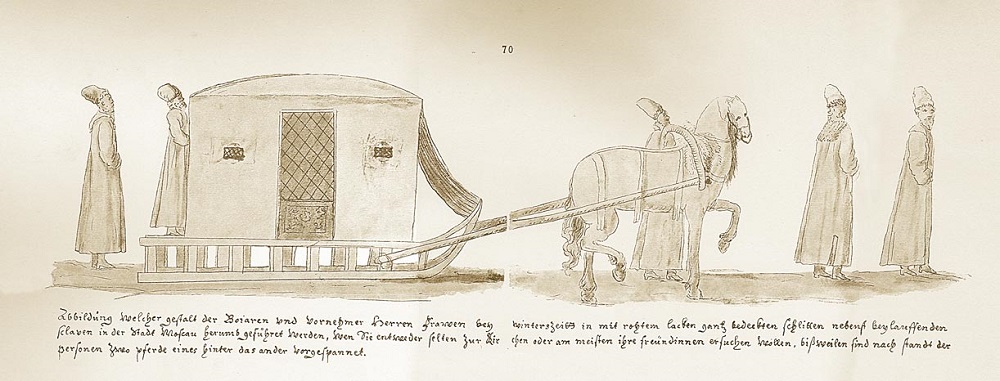 70
Abbildung welcher gestalt der Boiaren vnd vornehmer Herren Frawen bey winterszeits in mit rohtem lacken gantz bedeckten schlitten nebenst beylauffenden
sclaven in der Stadt Moscau herumb geführet werden, wen Sie entweder selten zur Kirchen oder am meisten ihre freündinnen ersuchen wollen, bißweilen sind nach standt der
personen zwo pferde eines hinter das ander vorgespannet.